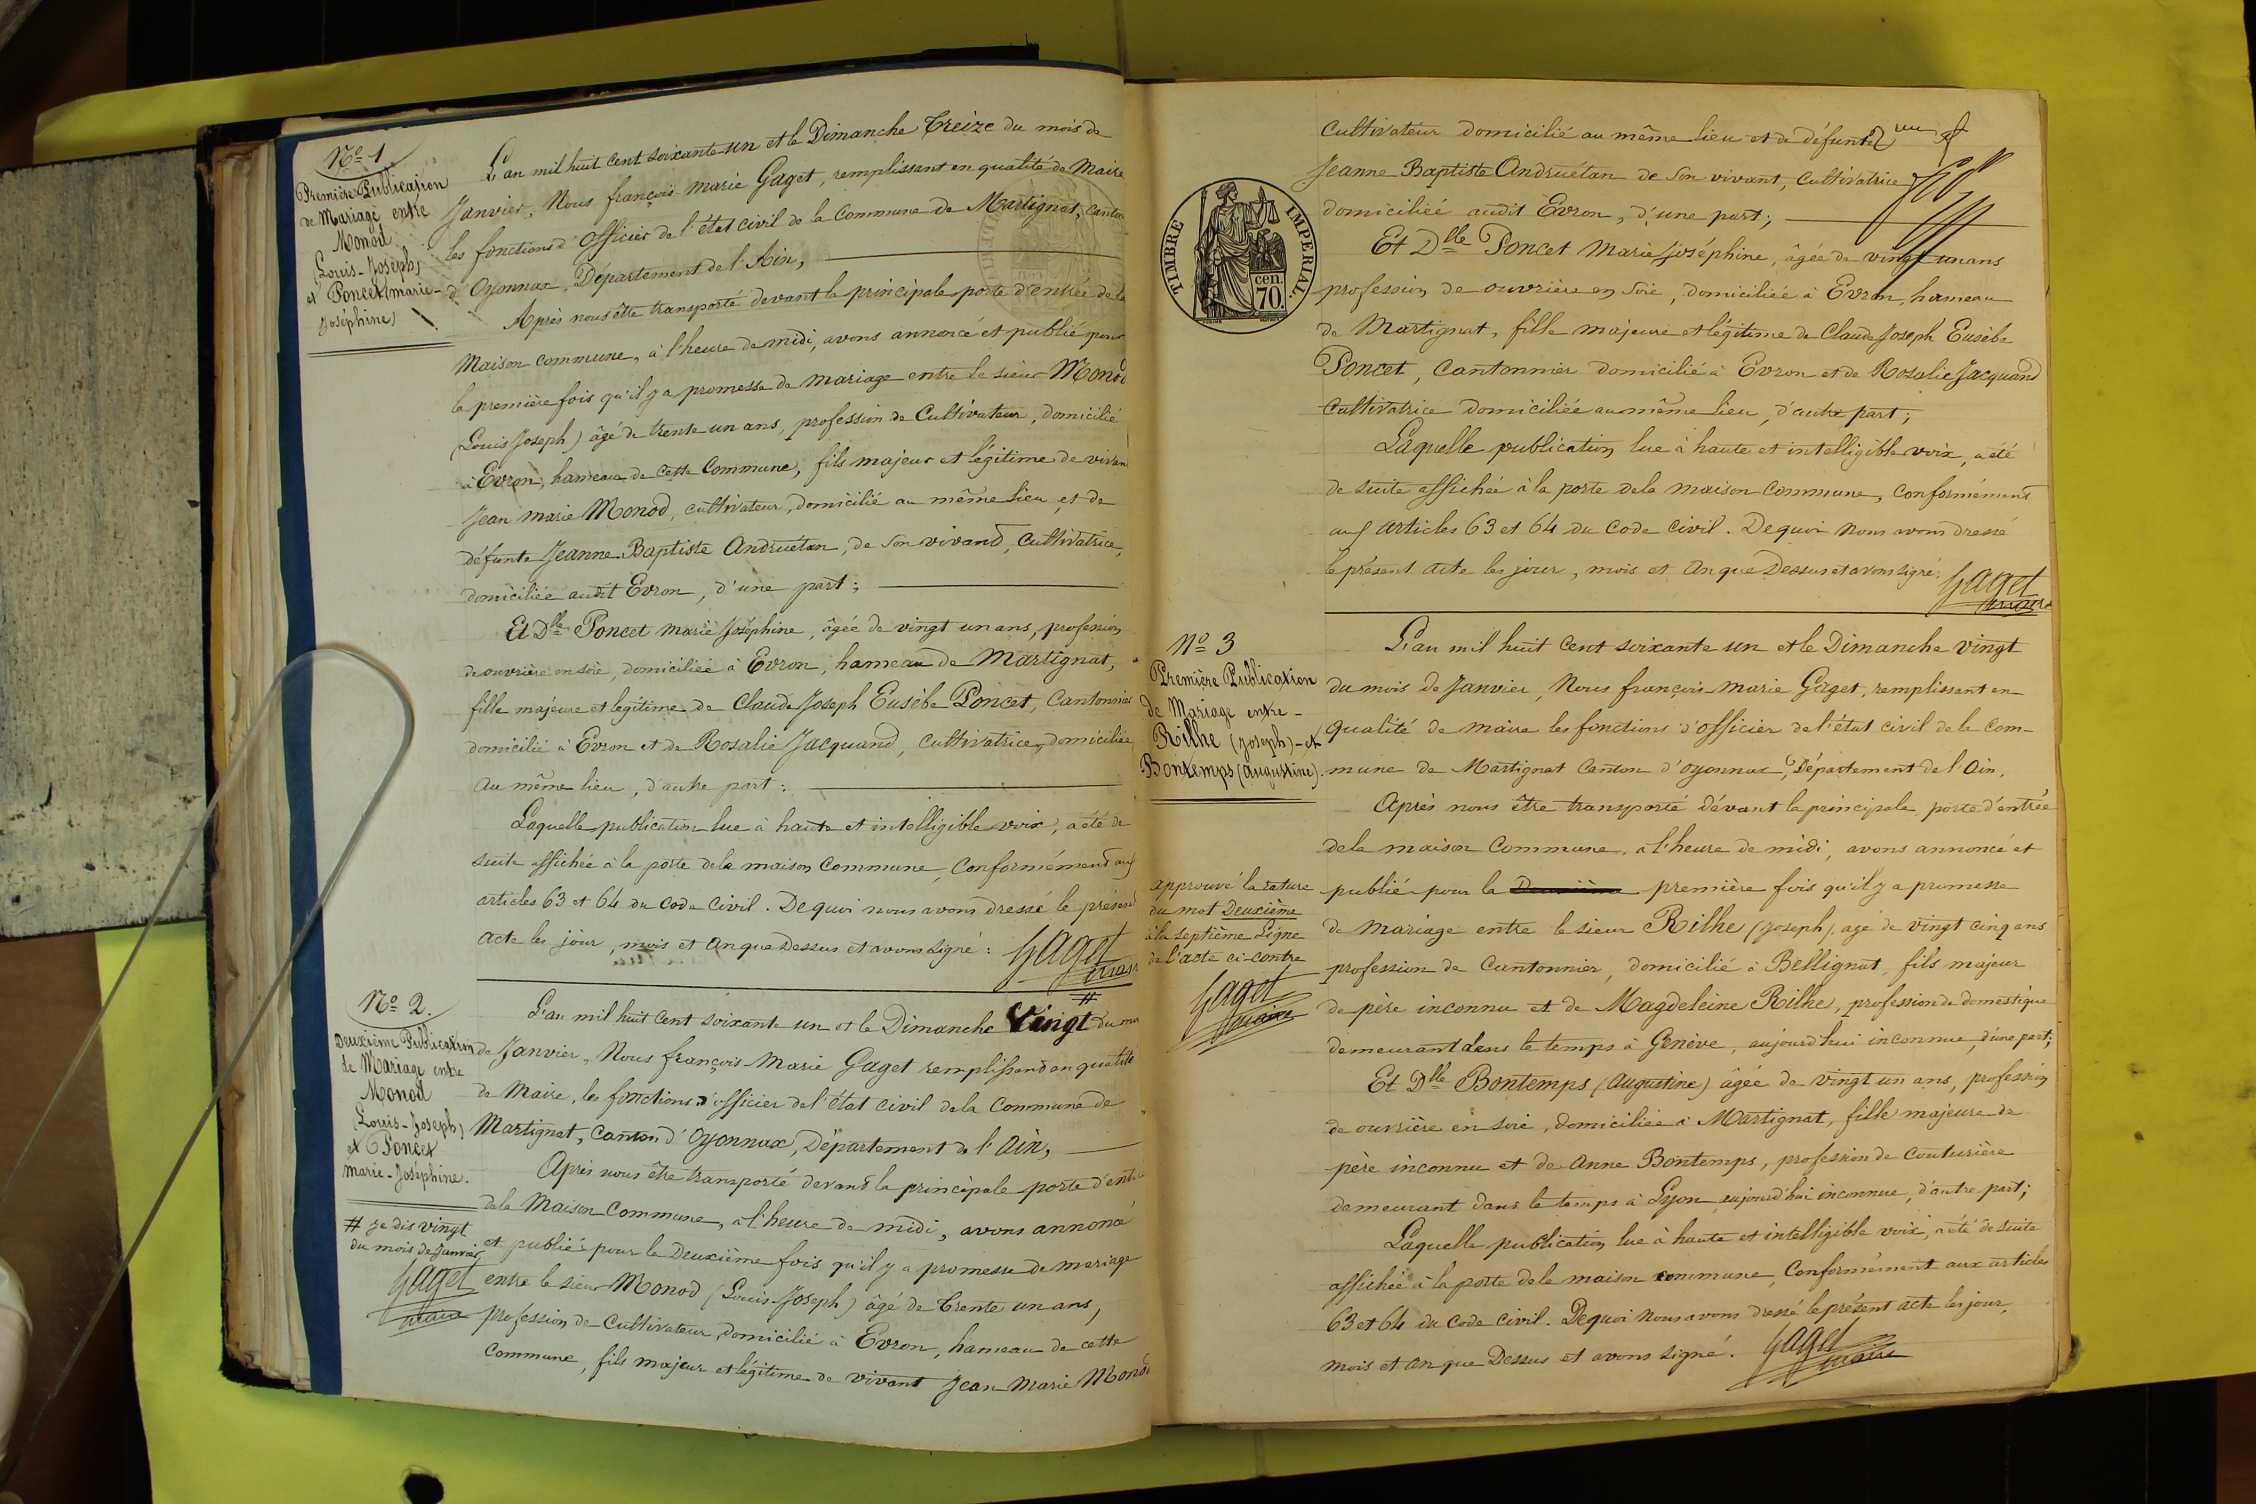 Nº 1
Première Publication
de Mariage entre
Monod
(Louis-Joseph)
et Poncet (marie-
Joséphine)
L'an mil huit cent soixante un et le Dimanche Treize du mois de
Janvier, Nous françois marie Gaget, remplissant en qualité de Maire
les fonctions d'Officier de l'état civil de la Commune de Martignat, canton
d'Oyonnax, Département de l'Ain,
Après nous être transporté devant la principale porte d'entrée de la
Maison commune, à l'heure de midi, avons annoncé et publié pour
la première fois qu'il y a promesse de mariage entre le sieur Monod
(Louis Joseph) âgé de trente un ans, profession de Cultivateur, domicilié
à Evron, hameau de cette Commune, fils majeur et légitime de vivant
Jean marie Monod, cultivateur, domicilié au même lieu et de
défunte Jeanne Baptiste Andruétan, de son vivand, Cultivatrice,
domiciliée audit Evron, d'une part;
Et Dlle Poncet marie Joséphine, âgée de vingt un ans, profession
de ouvrière en soie, domiciliée à Evron, hameau de Martignat,
fille majeure et légitime de Claude Joseph Eusèbe Poncet, Cantonnier
domicilié à Evron et de Rosalie Jacquand, cultivatrice, domiciliée
au même lieu, d'autre part:
Laquelle publication lue à haute et intelligible voix, a été de
suite affichée à la porte de la maison commune, conformémend aux
articles 63 et 64 du Code civil. De quoi nous avons dressé le présend
acte les jour, mois et an que Dessus et avons signé:
Gaget
maire
Nº 2.
Deuxième Publication
de Mariage entre
Monod
(Louis-Joseph)
et Poncet
marie-Joséphine.
#
L'an mil huit cent soixante un et le Dimanche Vingt du mois
de Janvier, Nous françois Marie Gaget remplissand en qualité
de Maire, les fonctions d'officier de l'état civil de la Commune de
Martignat, Canton d'Oyonnax, Département de l'Ain,
Après nous être transporté devand la principale porte d'entrée
de la Maison Commune, à l'heure de midi, avons annoncé
et publié pour la Deuxième fois qu'il y a promesse de mariage
entre le sieur Monod (Louis-Joseph) âgé de Trente un ans,
profession de Cultivateur, domicilié à Evron, hameau de cette
Commune, fils majeur et légitime de vivant Jean Marie Monod
# je dis vingt
du mois de Janvier
Gaget
maire
TIMBRE IMPERIAL.
70. cen
cultivateur domicilié au même lieu et de défunte
Jeanne Baptiste Andruétan de son vivant, Cultivatrice
domiciliée audit Evron, d'une part;
Et Dlle Poncet Marie Joséphine, âgée de vingt un ans
profession de ouvrière en soie, domiciliée à Evron, hameau
de Martignat, fille majeure et légitime de Claude Joseph Eusèbe
Poncet, Cantonnier domicilié à Evron et de Rosalie Jacquand
Cultivatrice domiciliée au même lieu, d'autre part;
Laquelle publication lue à haute et intelligible voix, a été
de suite affichée à la porte de la maison Commune, Conformément
aux articles 63 et 64 du Code civil. De quoi nous avons dressé
le présent acte les jour, mois et an que Dessus et avons signé:
Gaget
maire
Nº 3
Première Publication
de Mariage entre-
Rilhe (Joseph)-et
Bontemps (Augustine).
L'an mil huit Cent soixante un et le Dimanche vingt
du mois de Janvier, Nous françois marie Gaget, remplissant en
qualité de maire les fonctions d'officier de l'état civil de la com-
mune de Martignat canton d'oyonnax, Département de l'Ain,
Après nous être transporté dévant la principale porte d'entrée
de la maison Commune, à l'heure de midi, avons annoncé et
publié pour la Deuxième première fois qu'il y a promesse
de mariage entre le sieur Rilhe (Joseph), agé de vingt cinq ans
profession de Cantonnier, domicilié à Bellignat, fils majeur
de père inconnu et de Magdeleine Rilhe, profession de domestique
demeurant dans le temps à Genève, aujourd'hui inconnue, d'une part;
Et Dlle Bontemps (Augustine) âgée de vingt un ans, profession
de ouvrière en soie, domiciliée à Martignat, fille majeure de
père inconnu et de Anne Bontemps, profession de Couturière
demeurant dans le temps à Lyon aujourd'hui inconnue, d'autre part;
Laquelle publication lue à haute et intelligible voix, a été de suite
affichée à la porte de la maison commune, Conformément aux articles
63 et 64 du Code civil. De quoi nous avons dressé le présent acte les jour,
mois et an que Dessus et avons signé.
Gaget
maire
approuvé la rature
du mot Deuxième
à la septième Ligne
de l'acte ci-contre
Gaget
maire